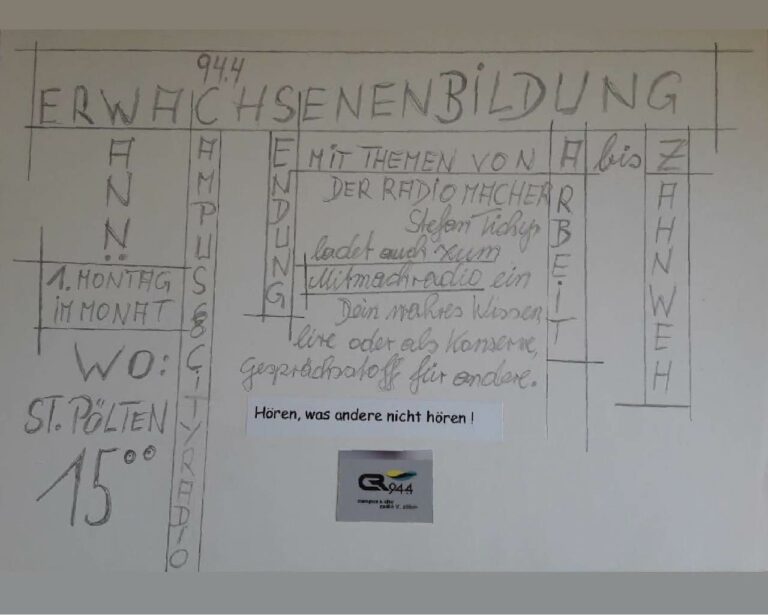 94.4
ERWACHSENENBILDUNG
ANN:
1. MONTAG
IM MONAT
WO:
ST. PÖLTEN
15⁰⁰
AMPUS & CITYRADIO
ENDUNG
MIT THEMEN VON A bis Z
RBEIT
AHNWEH
DER RADIOMACHER
Stefan Tichy
ladet auch zum
Mitmachradio ein
Dein wahres Wissen,
live oder als Konserve,
Gesprächsstoff für andere.
Hören, was andere nicht hören !
CR 944
campus & city
radio st. pölten